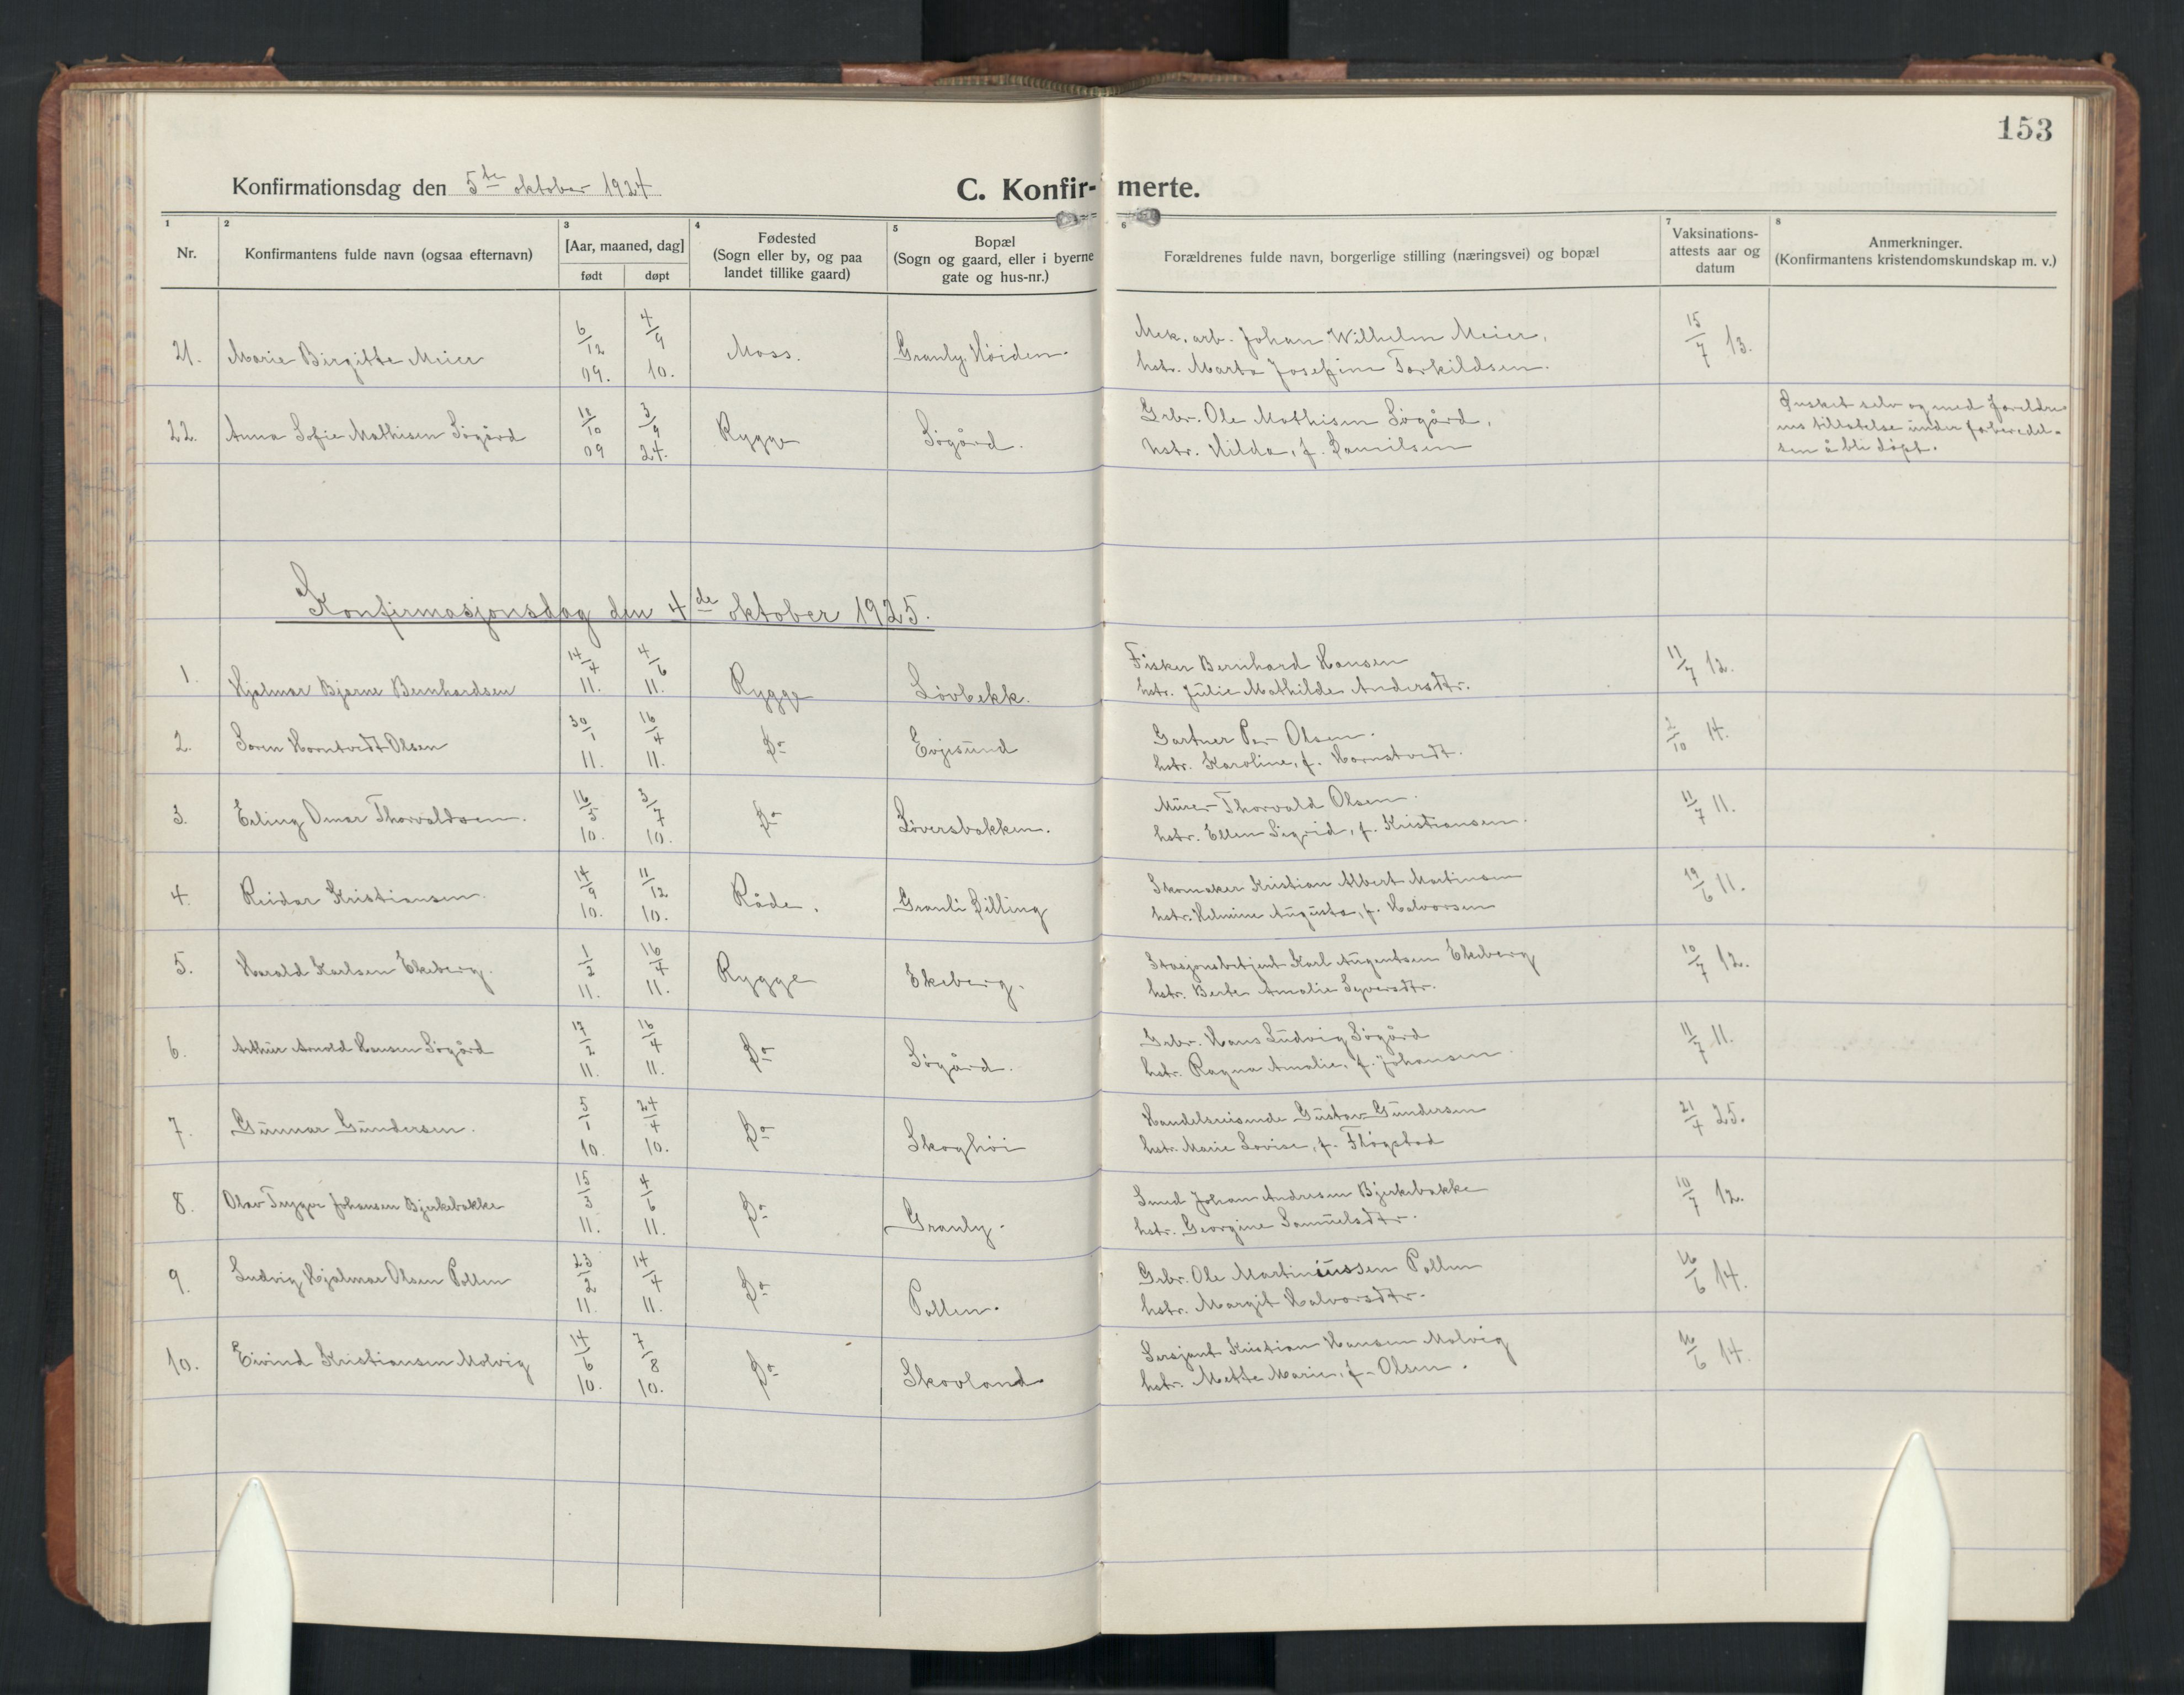 153
Konfirmationsdag den 5te oktober 1924
C. Konfir- merte.
1 2 3 4 5 6 7 8
Nr. Konfirmantens fulde navn (ogsaa efternavn) [Aar, maaned, dag] født døpt Fødested (Sogn eller by, og paa landet tillike gaard) Bopæl (Sogn og gaard, eller i byerne gate og hus-nr.) Forældrenes fulde navn, borgerlige stilling (næringsvei) og bopæl Vaksinations-attests aar og datum Anmerkninger. (Konfirmantens kristendomskundskap m. v.)
21. Marie Birgitte Meier 6/12 09. 4/9 10. Moss. Granly, Høiden. Mek. arb. Johan Wilhelm Meier, 15/7 13.
hstr. Marta Josefine Torkildsen.
22. Anna Sofie Mathisen Sögård 10/10 09 3/9 24. Rygge Sögård. Grbr. Ole Mathisen Sögård, Ønsket selv og med foreldre-
hstr. Hilda, f. Danielsen ens tillatelse under forberedel-
sen å bli döpt.
Konfirmasjonsdag den 4de oktober 1925.
1. Hjalmar Bjarne Bernhardsen 14/4 11. 4/6 11. Rygge Lövbekk. Fisker Bernhard Hansen 11/7 12.
hstr. Julie Mathilde Andersdtr.
2. Soren Horntvedt Olsen 30/1 11. 16/4 11. Do Evjesund Gartner Per Olsen. 2/10 14.
hstr. Karoline, f. Horntvedt.
3. Erling Omar Thorvaldsen. 16/5 10. 3/7 10. Do Löversbakken. Murer Thorvald Olsen. 11/7 11.
hstr. Ellen Sigrid, f. Kristiansen.
4. Reidar Kristiansen. 14/9 10. 11/12 10. Råde. Granli Dilling Skomaker Kristian Albert Martinsen 19/6 11.
hstr. Helmine Augusta, f. Halvorsen
5. Harald Karlsen Ekeberg. 1/2 11. 16/4 11. Rygge Ekeberg. Stasjonsbetjent Karl Augentsen Ekeberg 10/7 12.
hstr. Berte Amalie Syversdtr.
6. Arthur Arnold Hansen Sögård 17/2 11. 16/4 11. Do Sögård. Grbr. Hans Ludvig Sögård 11/7 11.
hstr. Ragna Amalie, f. Johansen.
7. Gunnar Gundersen. 5/1 10. 24/4 10. Do Skoghöi Handelsreisende Gustav Gundersen 21/4 25.
hstr. Marie Lovise, f. Flögstad
8. Olav Trygve Johansen Bjerkebakke 15/3 11. 4/6 11. Do Granly. Smed Johan Andresen Bjerkebakke 10/7 12.
hstr. Georgine Samuelsdtr.
9. Ludvig Hjalmar Olsen Pollen 23/2 11. 14/4 11. Do Pollen. Grbr. Ole Martiniussen Pollen 16/6 14.
hstr. Margit Halvorsdtr.
10. Eivind Kristiansen Molvig 14/6 10. 7/8 10. Do Skovland Sersjant Kristian Hansen Molvig 16/6 14.
hstr. Mette Marie, f. Olsen.